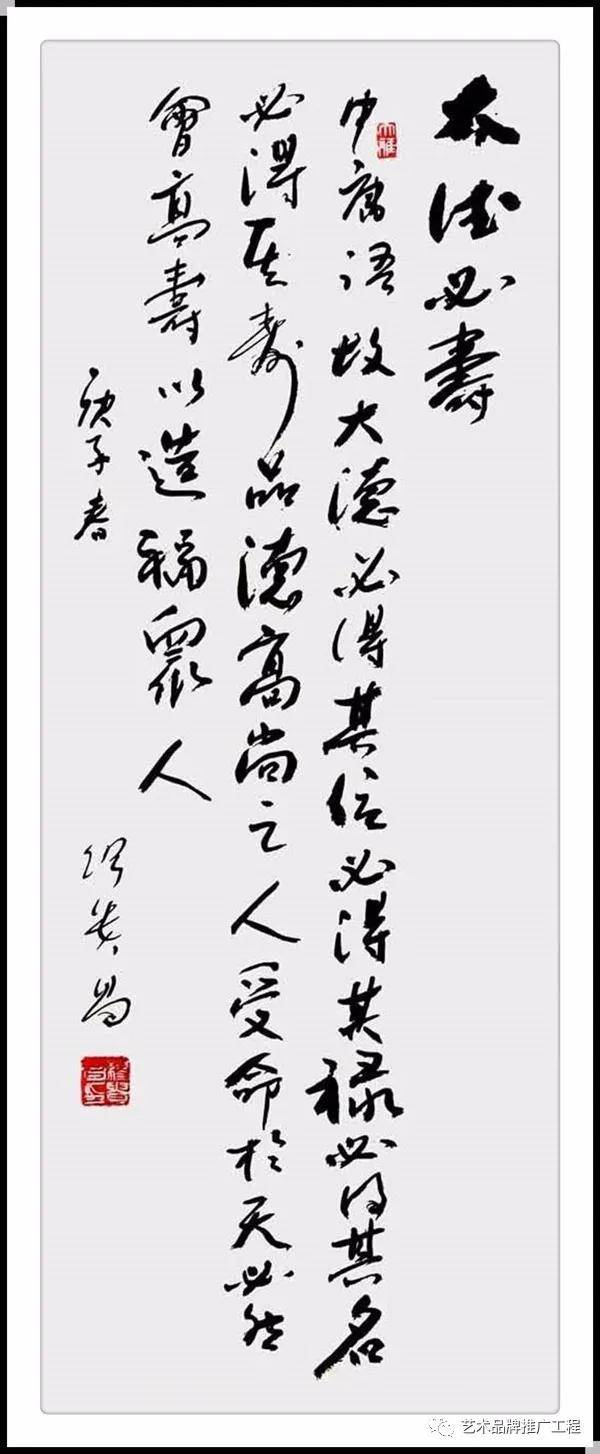 德必壽
中庸語故大德必得其位必得其禄必得其名
必得其壽品德高尚之人受命於天必然
會高壽以造福眾人
庚子春
大雅
艺术品牌推广工程